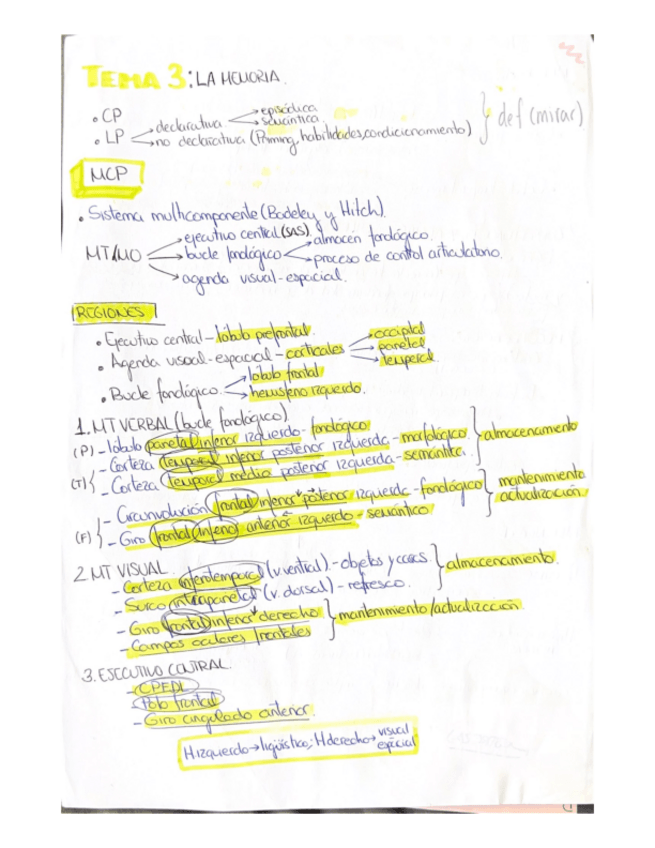 TEMA 3: LA MEMORIA.
• CP
• LP → declarativa → episódica → semántica
→ no declarativa (Priming, habilidades, condicionamiento) } def (mirar)
MCP
• Sistema multicomponente (Badeley y Hitch).
MT/MO → ejecutivo central (SAS).
→ bucle fonológico → almacén fonológico.
→ proceso de control articulatorio.
→ agenda visual-espacial.
REGIONES
• Ejecutivo central - lóbulo prefrontal.
• Agenda visual-espacial - corticales → occipital → parietal → temporal.
• Bucle fonológico. → lóbulo frontal → hemisferio izquierdo.
1. MT VERBAL (bucle fonológico)
(P) - lóbulo parietal inferior izquierdo - fonológico
(T) { - Corteza temporal inferior posterior izquierda - morfológico
- Corteza temporal media posterior izquierda - semántica. } almacenamiento
(F) { - Circunvolución frontal inferior posterior izquierda - fonológico
- Giro frontal inferior anterior izquierdo - semántico. } mantenimiento actualización
2 MT VISUAL
- Corteza inferotemporal (v. ventral) - objetos y caras.
- Surco intraparietal (v. dorsal) - refresco. } almacenamiento
- Giro frontal inferior derecho
- Campos oculares frontales } mantenimiento/actualización
3. EJECUTIVO CENTRAL.
- CPFDL
- Polo frontal
- Giro cingulado anterior.
H izquierdo → ligüístico; H derecho → visual espacial